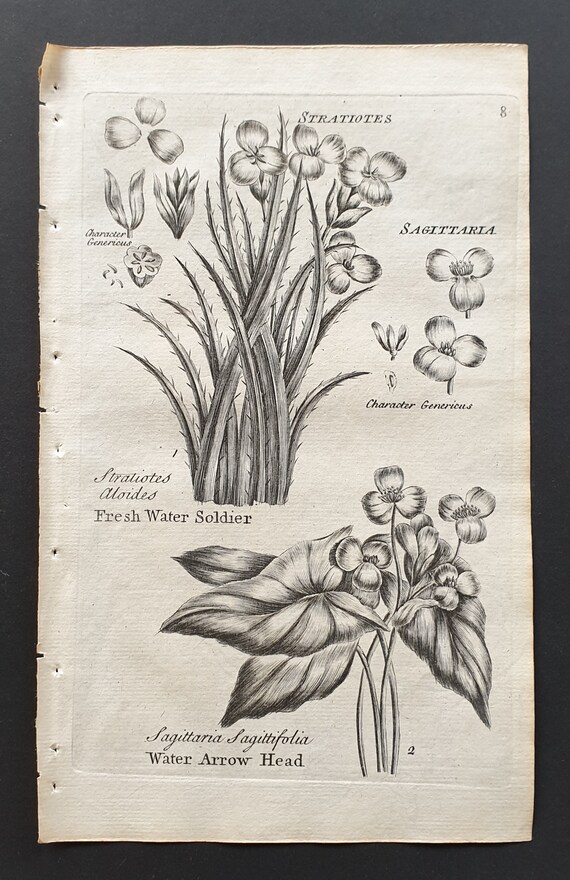 8
STRATIOTES
Character
Genericus
SAGITTARIA
Character Genericus
1
Stratiotes
Aloides
Fresh Water Soldier
Sagittaria Sagittifolia
Water Arrow Head
2